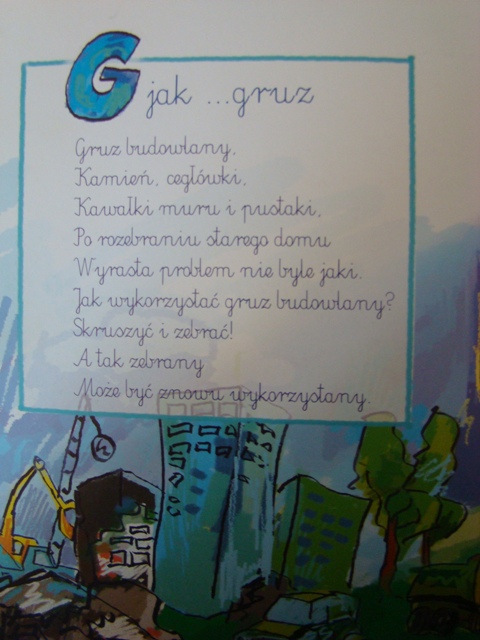 G jak ...gruz
Gruz budowlany,
Kamień, cegłówki,
Kawałki muru i pustaki,
Po rozebraniu starego domu
Wyrasta problem nie byle jaki.
Jak wykorzystać gruz budowlany?
Skruszyć i zebrać!
A tak zebrany
Może być znowu wykorzystany.